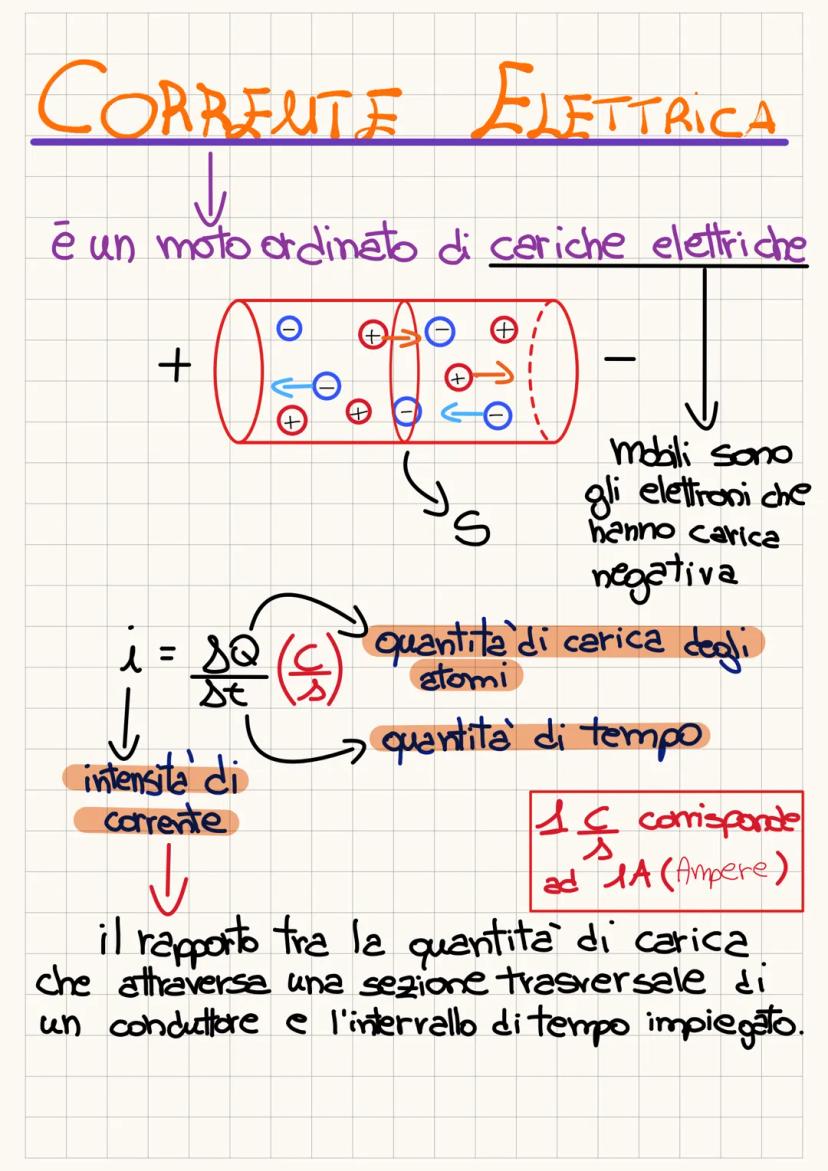 CORRENTE ELETTRICA
è un moto ordinato di cariche elettriche
- + - +
+ - + -
+ + - -
mobili sono
gli elettroni che
hanno carica
negativa
S
i = ΔQ/Δt (C/s)
quantità di carica degli
atomi
quantità di tempo
intensità di
corrente
1 C/s corrisponde
ad 1A (Ampere)
il rapporto tra la quantità di carica
che attraversa una sezione trasversale di
un conduttore e l'intervallo di tempo impiegato.